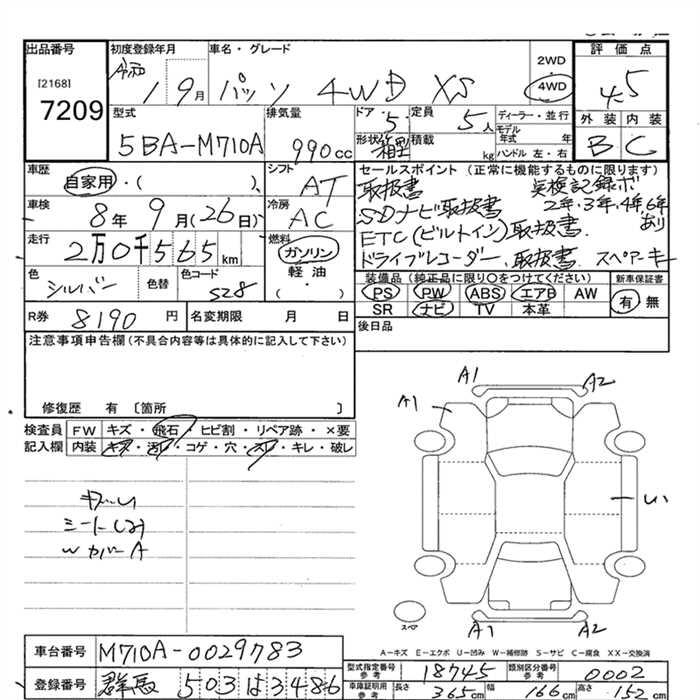 出品番号 初度登録年月 車名・グレード 評価点
[2168] 令和 1 9月 パッソ 4WD XS 2WD 4WD 4.5
7209 型式 排気量 ドア 5 定員 5人 ディーラー・並行 外装 内装
5BA-M710A 990cc 形状 箱型 積載 kg モデル年式 年 ハンドル 左・右 B C
車歴 自家用・( ) シフト AT セールスポイント (正常に機能するものに限ります)
取扱書 点検記録ボ
車検 8年 9月(26日) 冷房 AC SDナビ取扱書 2年.3年.4年.6年 あり
走行 2万0千565km 燃料 ガソリン 軽油 ・( ) ETC(ビルトイン)取扱書
ドライブレコーダー、取扱書 スペアーキー
色 シルバー 色替 色コード S28 装備品 (純正品に限り○をつけてください) 新車保証書
PS PW ABS エアB AW 有 無
SR ナビ TV 本革
R券 8190 円 名変期限 月 日 後日品
注意事項申告欄(不具合内容等は具体的に記入して下さい)
修復歴 有 〔箇所 〕
検査員 FW キズ・飛石・ヒビ割・リペア跡・×要
記入欄 内装 キズ・汚レ・コゲ・穴・スレ・キレ・破レ
シートシミ
WカバーA
A1 A2
A1
A1 A2
スペア
A-キズ E-エクボ U-凹み W-補修跡 S-サビ C-腐食 XX-交換済
車台番号 M710A-0029783
型式指定番号 参考 18745 類別区分番号 参考 0002
登録番号 群馬 503は3486
車庫証明用 参考 長さ 365cm 幅 166cm 高さ 152cm